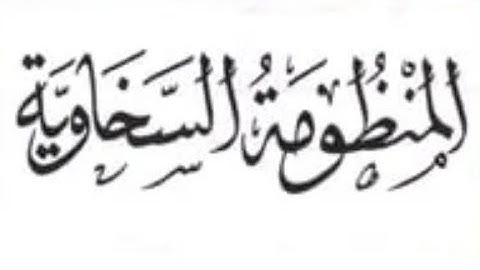 المَنْظُومَةُ السَّخَاوِيَّة